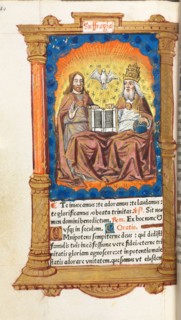 Suffragia
Te inuocamus: te adoramus: te laudamus:
te glorificamus o beata trinitas. Sit no
men domini benedictum. Ex hoc nunc
usqꝫ in seculum. Oratio.
Mnipotens sempiterne deus: qui dedisti
famulis tuis in confessione vere fidei: eterne tri
nitatis gloriam agnoscere: et in potentia maie
statis adorare vnitatem. quesumus vt